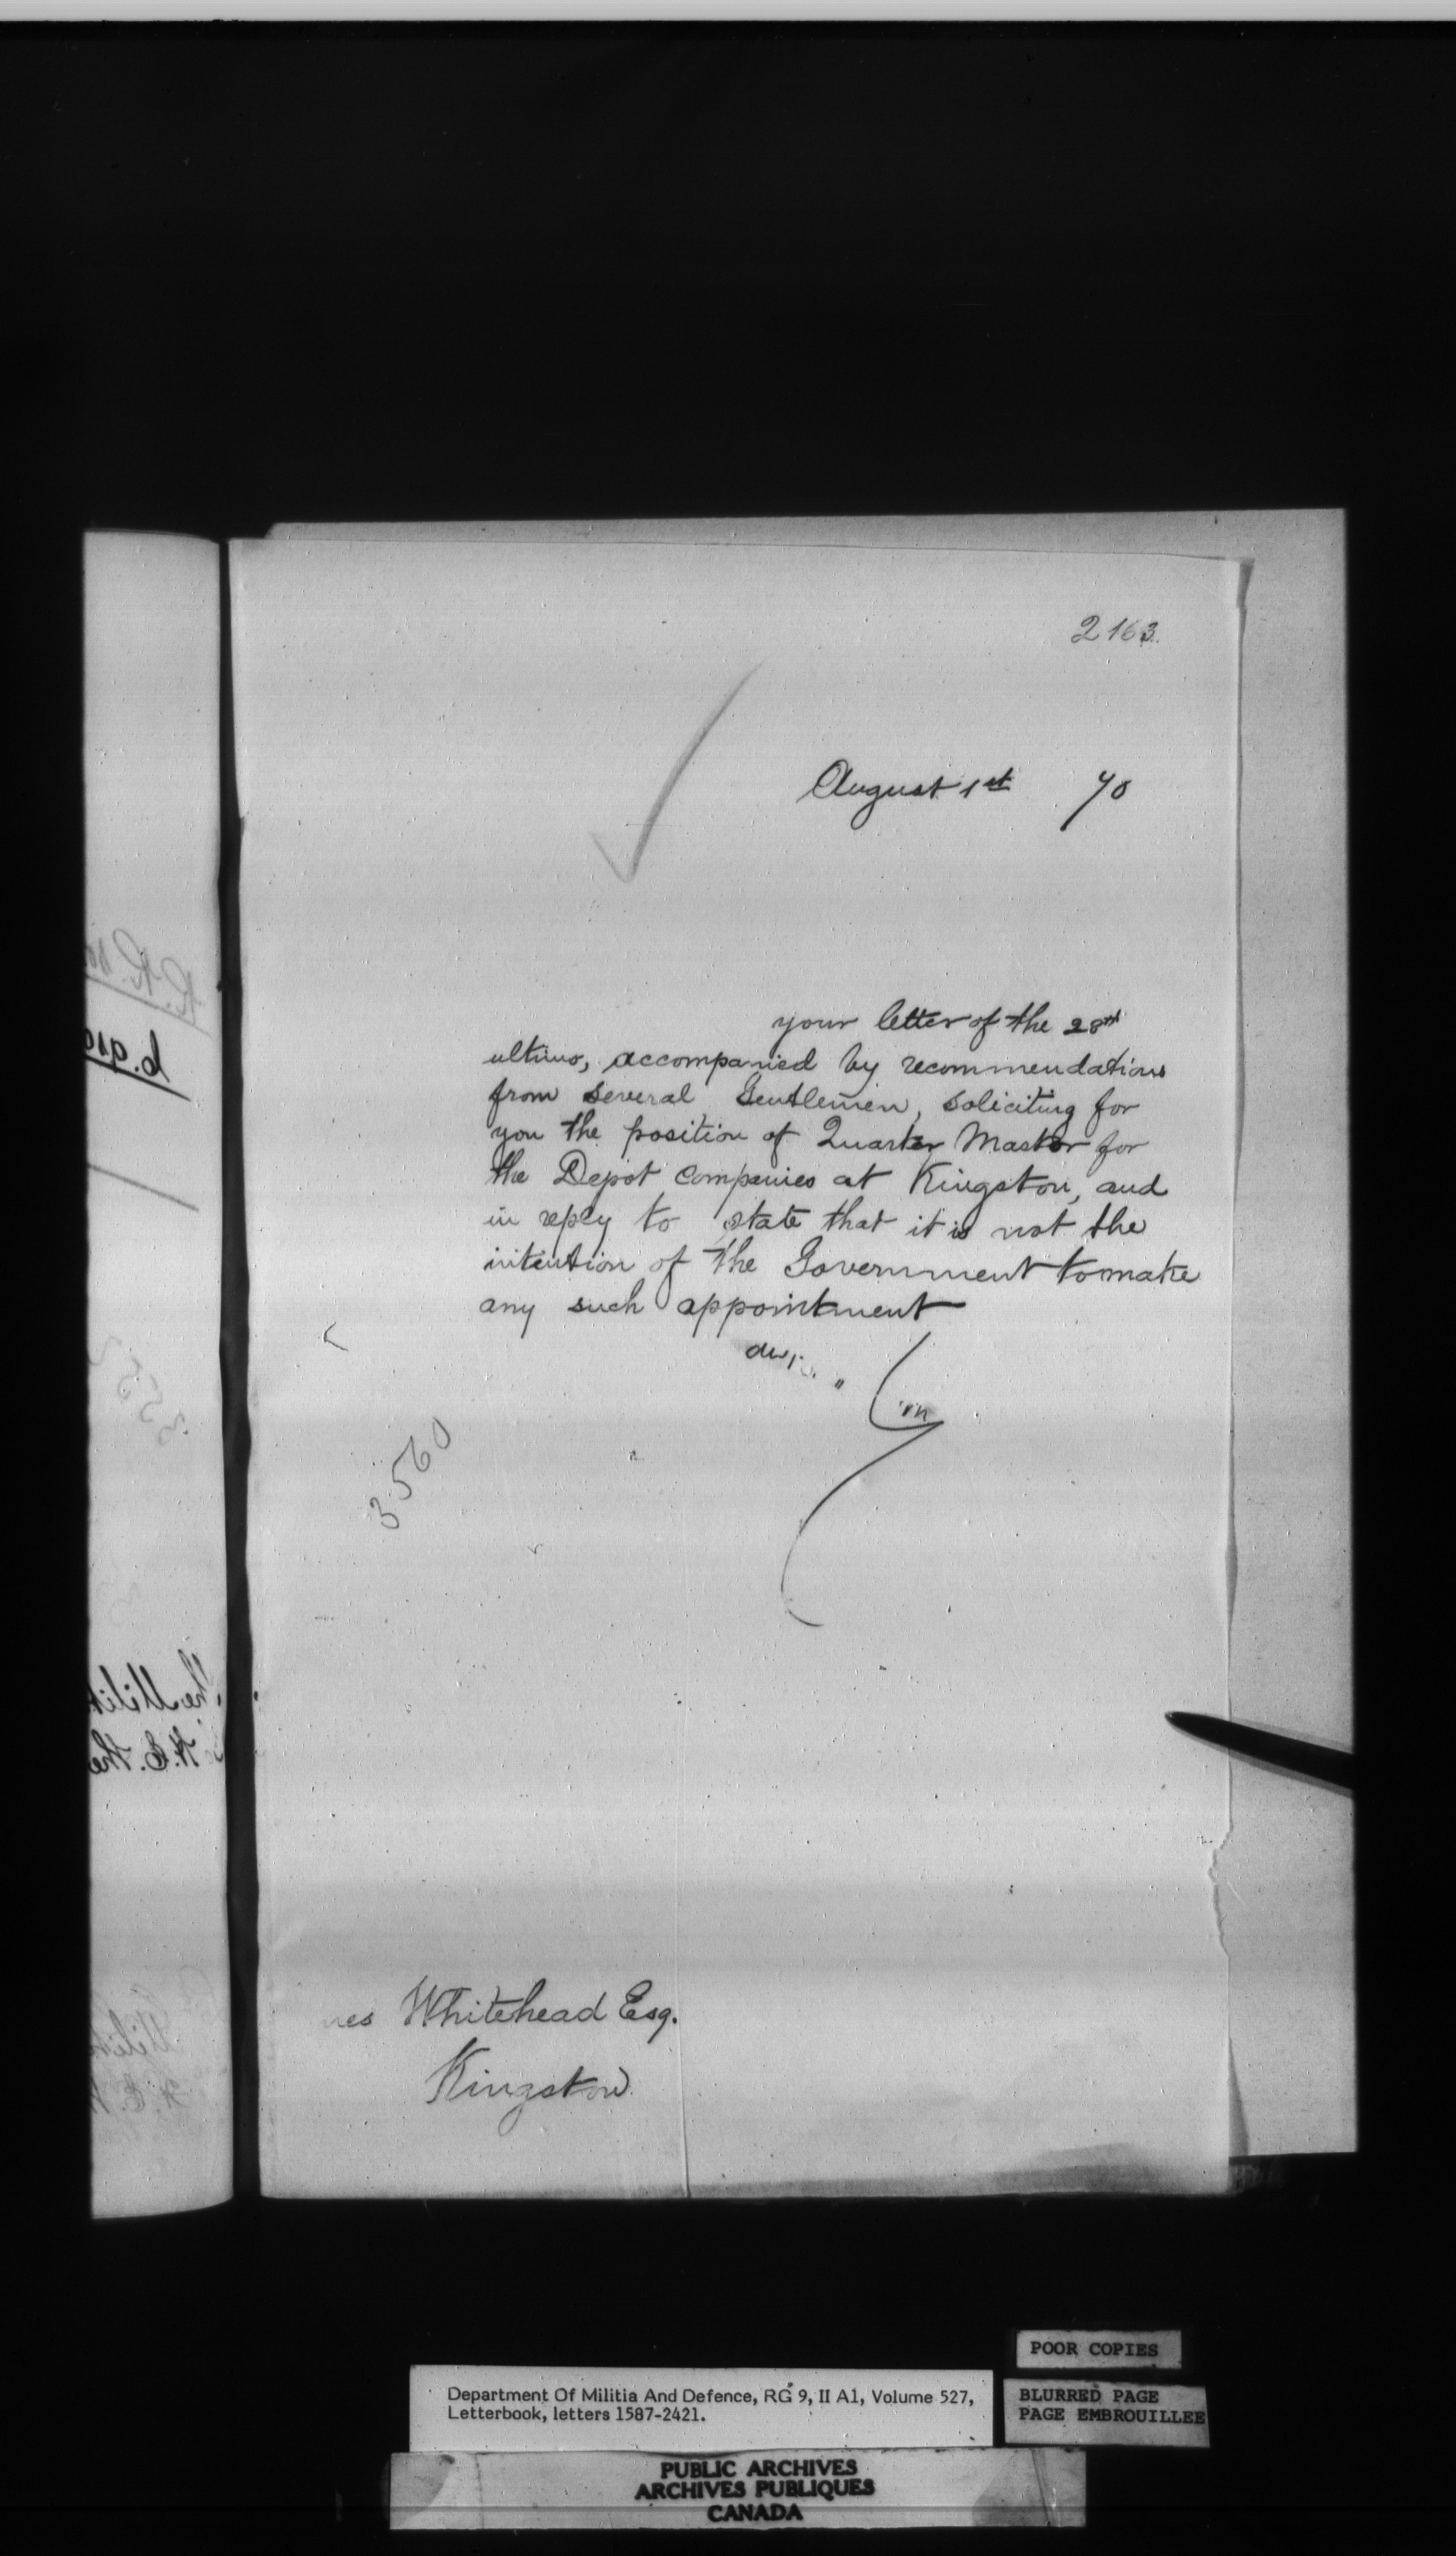 2163.
August 1st 70
your letter of the 28th
ultimo, accompanied by recommendations
from several Gentlemen, soliciting for
you the position of Quarter Master for
the Depot Companies at Kingston, and
in reply to state that it is not the
intention of the Government to make
any such appointment
3560
Whitehead Esq.
Kingston
POOR COPIES
Department Of Militia And Defence, RG 9, II A1, Volume 527,
Letterbook, letters 1587-2421.
BLURRED PAGE
PAGE EMBROUILLEE
PUBLIC ARCHIVES
ARCHIVES PUBLIQUES
CANADA